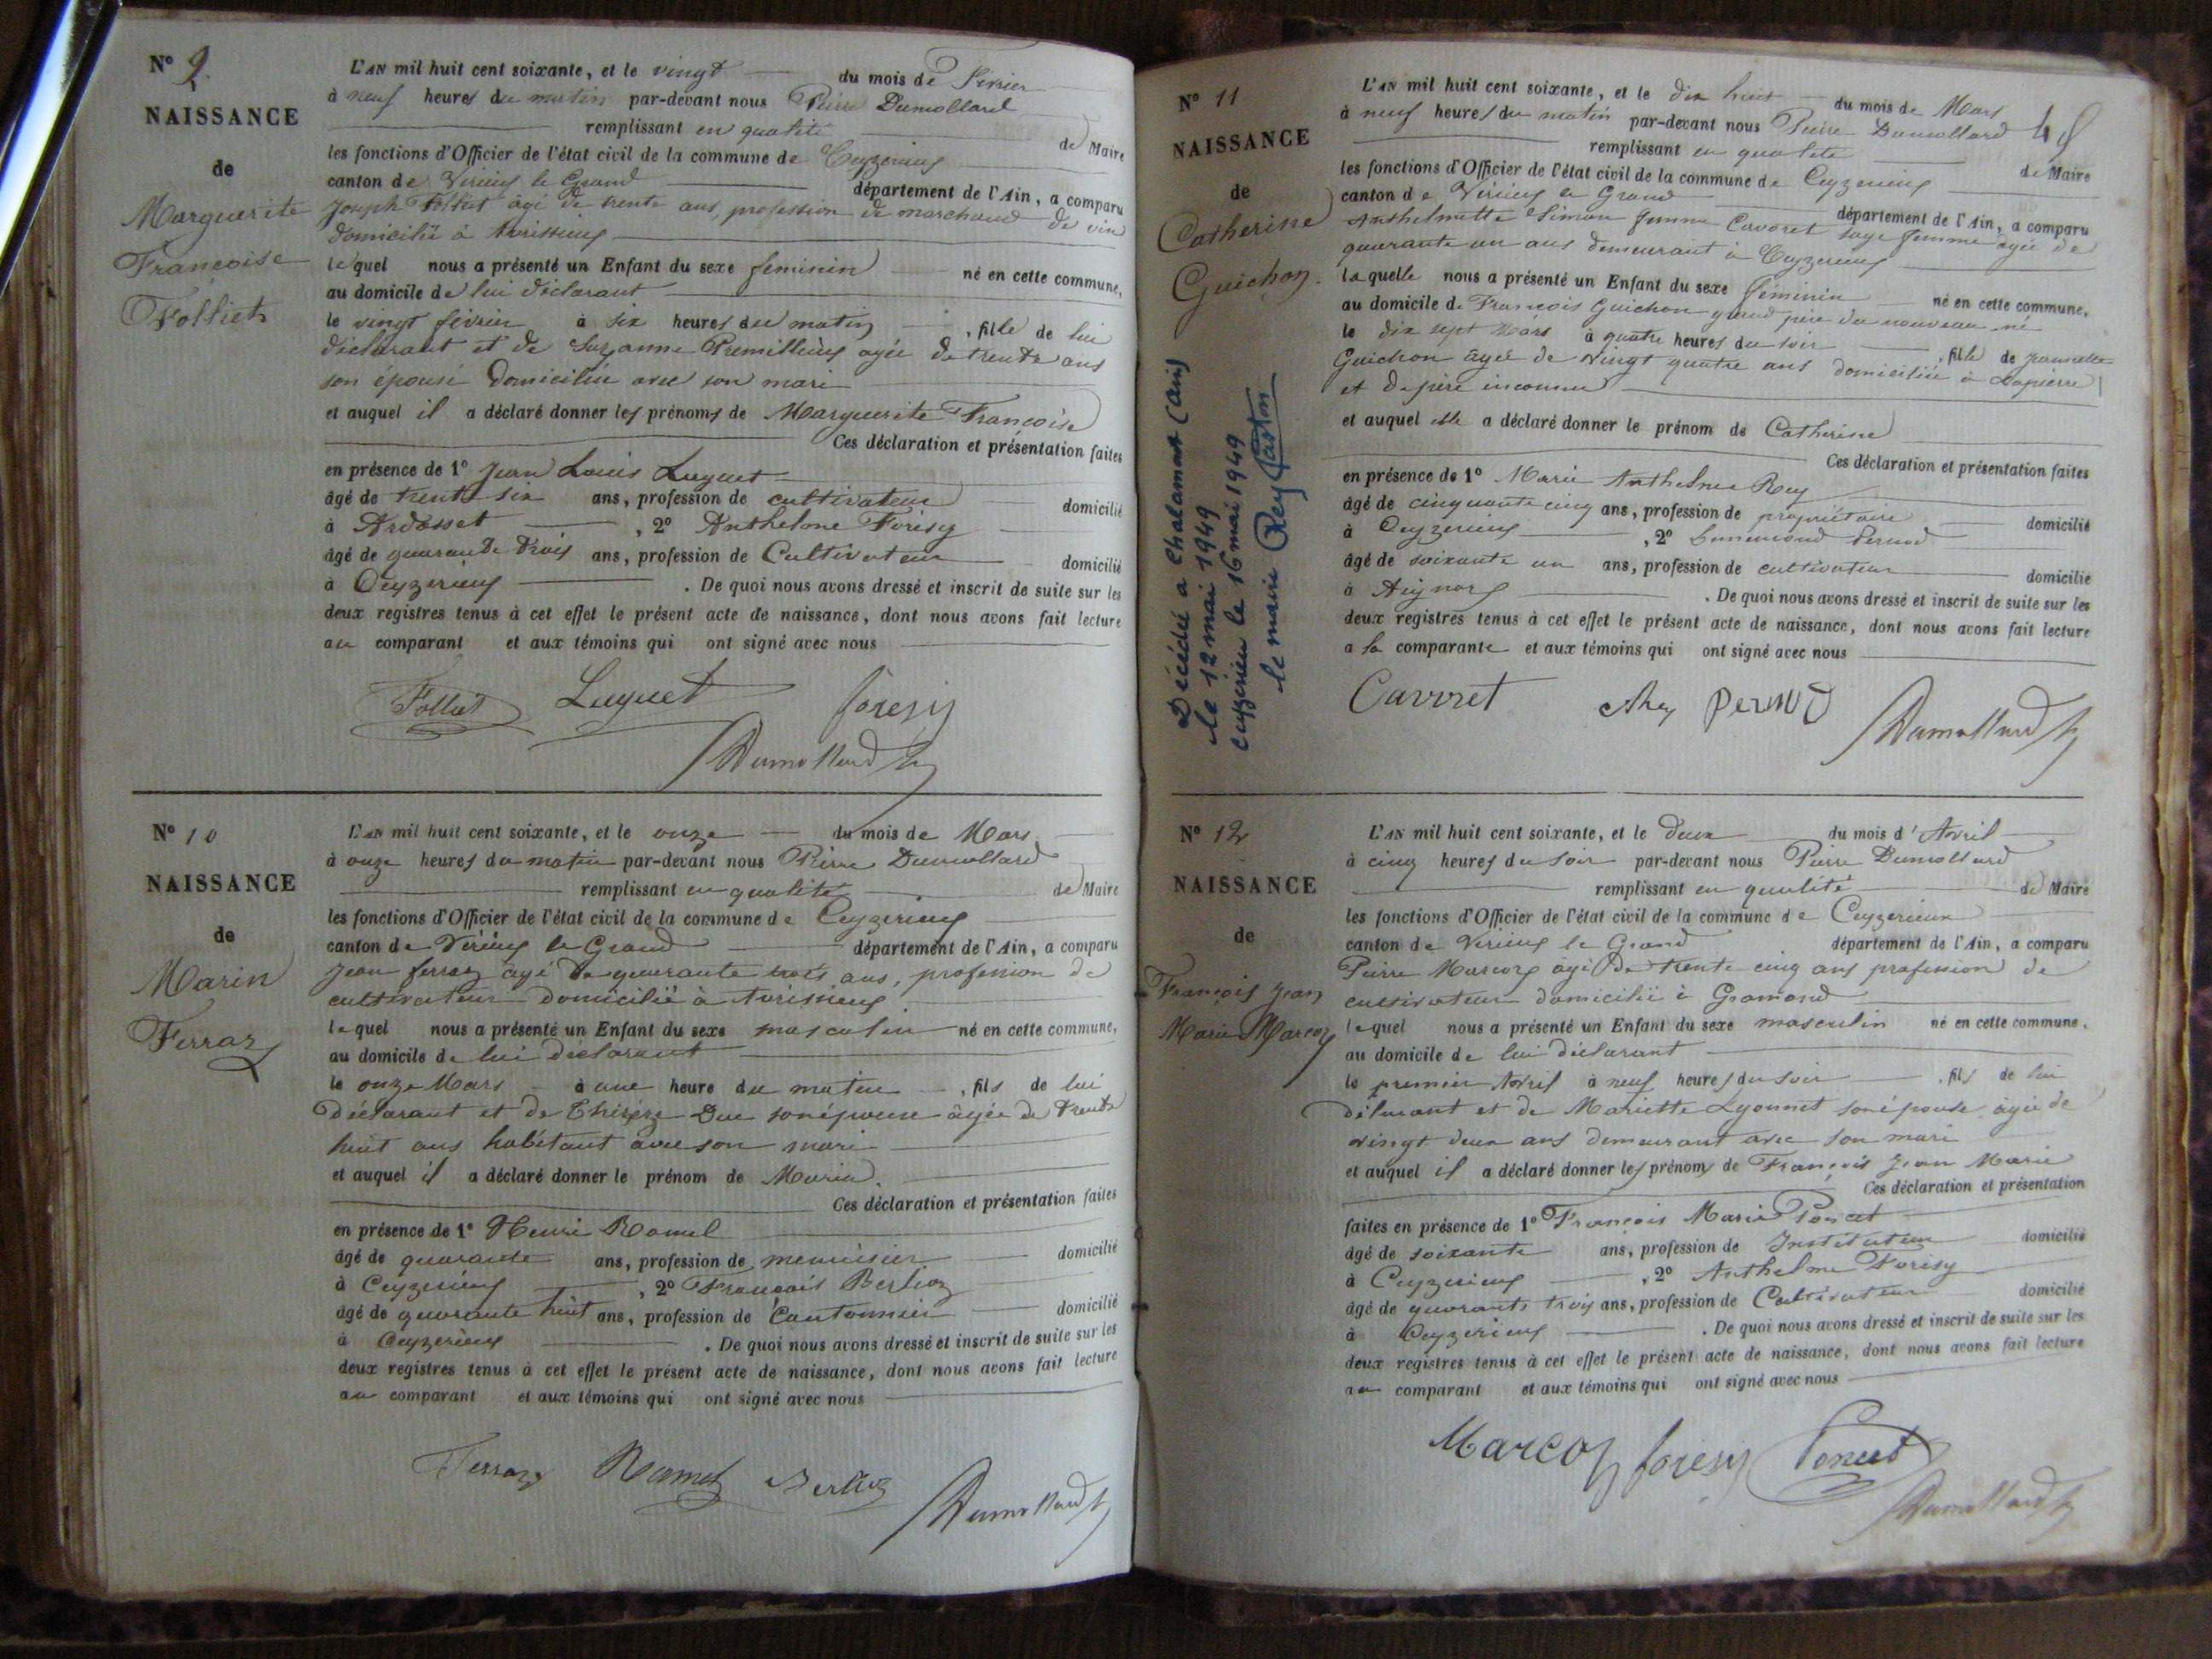 N° 9
NAISSANCE
de
Marguerite
Françoise
Folliet
L'AN mil huit cent soixante, et le vingt du mois de Février
à neuf heures du matin par-devant nous Pierre Dumollard
remplissant en qualité de Maire
les fonctions d'Officier de l'état civil de la commune de Ceyzerieux
canton de Virieux le Grand département de l'Ain, a comparu
Joseph Folliet âgé de trente ans, profession de marchand de vin
domicilié à Avrissieux
lequel nous a présenté un Enfant du sexe feminin né en cette commune,
au domicile de lui déclarant
le vingt février à six heures du matin, fille de lui
déclarant et de Suzanne Premillieux agée de trente ans
son épouse domiciliée avec son mari
et auquel il a déclaré donner les prénoms de Marguerite Françoise
Ces déclaration et présentation faites
en présence de 1° Jean Louis Luquet
âgé de trente six ans, profession de cultivateur domicilié
à Ardosset, 2° Anthelme Forisy
âgé de quarante trois ans, profession de Cultivateur domicilié
à Ceyzerieux. De quoi nous avons dressé et inscrit de suite sur les
deux registres tenus à cet effet le présent acte de naissance, dont nous avons fait lecture
au comparant et aux témoins qui ont signé avec nous
Folliet Luquet forisy
Dumollard
N° 10
NAISSANCE
de
Marin
Ferraz
L'AN mil huit cent soixante, et le onze du mois de Mars
à onze heures du matin par-devant nous Pierre Dumollard
remplissant en qualité de Maire
les fonctions d'Officier de l'état civil de la commune de Ceyzerieux
canton de Virieux le Grand département de l'Ain, a comparu
Jean ferraz âgé de quarante trois ans, profession de
cultivateur domicilié à Avrissieux
lequel nous a présenté un Enfant du sexe masculin né en cette commune,
au domicile de lui déclarant
le onze Mars à une heure du matin, fils de lui
déclarant et de Thérèze Duc son épouse âgée de trente
huit ans habitant avec son mari
et auquel il a déclaré donner le prénom de Marin.
Ces déclaration et présentation faites
en présence de 1° Henri Ramel
âgé de quarante ans, profession de menuisier domicilié
à Ceyzerieux, 2° François Berlioz
âgé de quarante huit ans, profession de Cantonnier domicilié
à Ceyzerieux. De quoi nous avons dressé et inscrit de suite sur les
deux registres tenus à cet effet le présent acte de naissance, dont nous avons fait lecture
au comparant et aux témoins qui ont signé avec nous
Ferraz Ramel Berlioz Dumollard
N° 11
NAISSANCE
de
Catherine
Guichon.
Décédée à Chalamont (Ain)
le 12 mai 1949
Ceyzérieu le 16 mai 1949
le maire Rey Gaston
L'AN mil huit cent soixante, et le dix huit du mois de Mars
à neuf heures du matin par-devant nous Pierre Dumollard
remplissant en qualité de Maire
les fonctions d'Officier de l'état civil de la commune de Ceyzerieux
canton de Virieux le Grand département de l'Ain, a comparu
Anthelmette Simon femme Cavoret sage femme agée de
quarante un ans demeurant à Ceyzerieux
laquelle nous a présenté un Enfant du sexe féminin né en cette commune,
au domicile de François Guichon grand père du nouveau né
le dix sept Mars à quatre heures du soir, fille de Jeannette
Guichon âgée de vingt quatre ans domiciliée à Lapierre
et de père inconnu
et auquel elle a déclaré donner le prénom de Catherine
Ces déclaration et présentation faites
en présence de 1° Marie Anthelme Rey
âgé de cinquante cinq ans, profession de propriétaire domicilié
à Ceyzerieux, 2° Pernod
âgé de soixante un ans, profession de cultivateur domicilié
à Aignoz. De quoi nous avons dressé et inscrit de suite sur les
deux registres tenus à cet effet le présent acte de naissance, dont nous avons fait lecture
a la comparante et aux témoins qui ont signé avec nous
Cavoret Rey Pernod
Dumollard
N° 12
NAISSANCE
de
François Jean
Marie Marcoz
L'AN mil huit cent soixante, et le deux du mois d'Avril
à cinq heures du soir par-devant nous Pierre Dumollard
remplissant en qualité de Maire
les fonctions d'Officier de l'état civil de la commune de Ceyzerieux
canton de Virieux le Grand département de l'Ain, a comparu
Pierre Marcoz âgé de trente cinq ans profession de
cultivateur domicilié à Gramond
lequel nous a présenté un Enfant du sexe masculin né en cette commune.
au domicile de lui déclarant
le premier Avril à neuf heures du soir, fils de lui
déclarant et de Mariette Lyonnet son épouse agée de
vingt deux ans demeurant avec son mari
et auquel il a déclaré donner les prénoms de François Jean Marie
Ces déclaration et présentation
faites en présence de 1° François Marie Poncet
âgé de soixante ans, profession de Instituteur domicilié
à Ceyzerieux, 2° Anthelme Forisy
âgé de quarante trois ans, profession de Cultivateur domicilié
à Ceyzerieux. De quoi nous avons dressé et inscrit de suite sur les
deux registres tenus à cet effet le présent acte de naissance, dont nous avons fait lecture
au comparant et aux témoins qui ont signé avec nous
Marcoz forisy Poncet
Dumollard